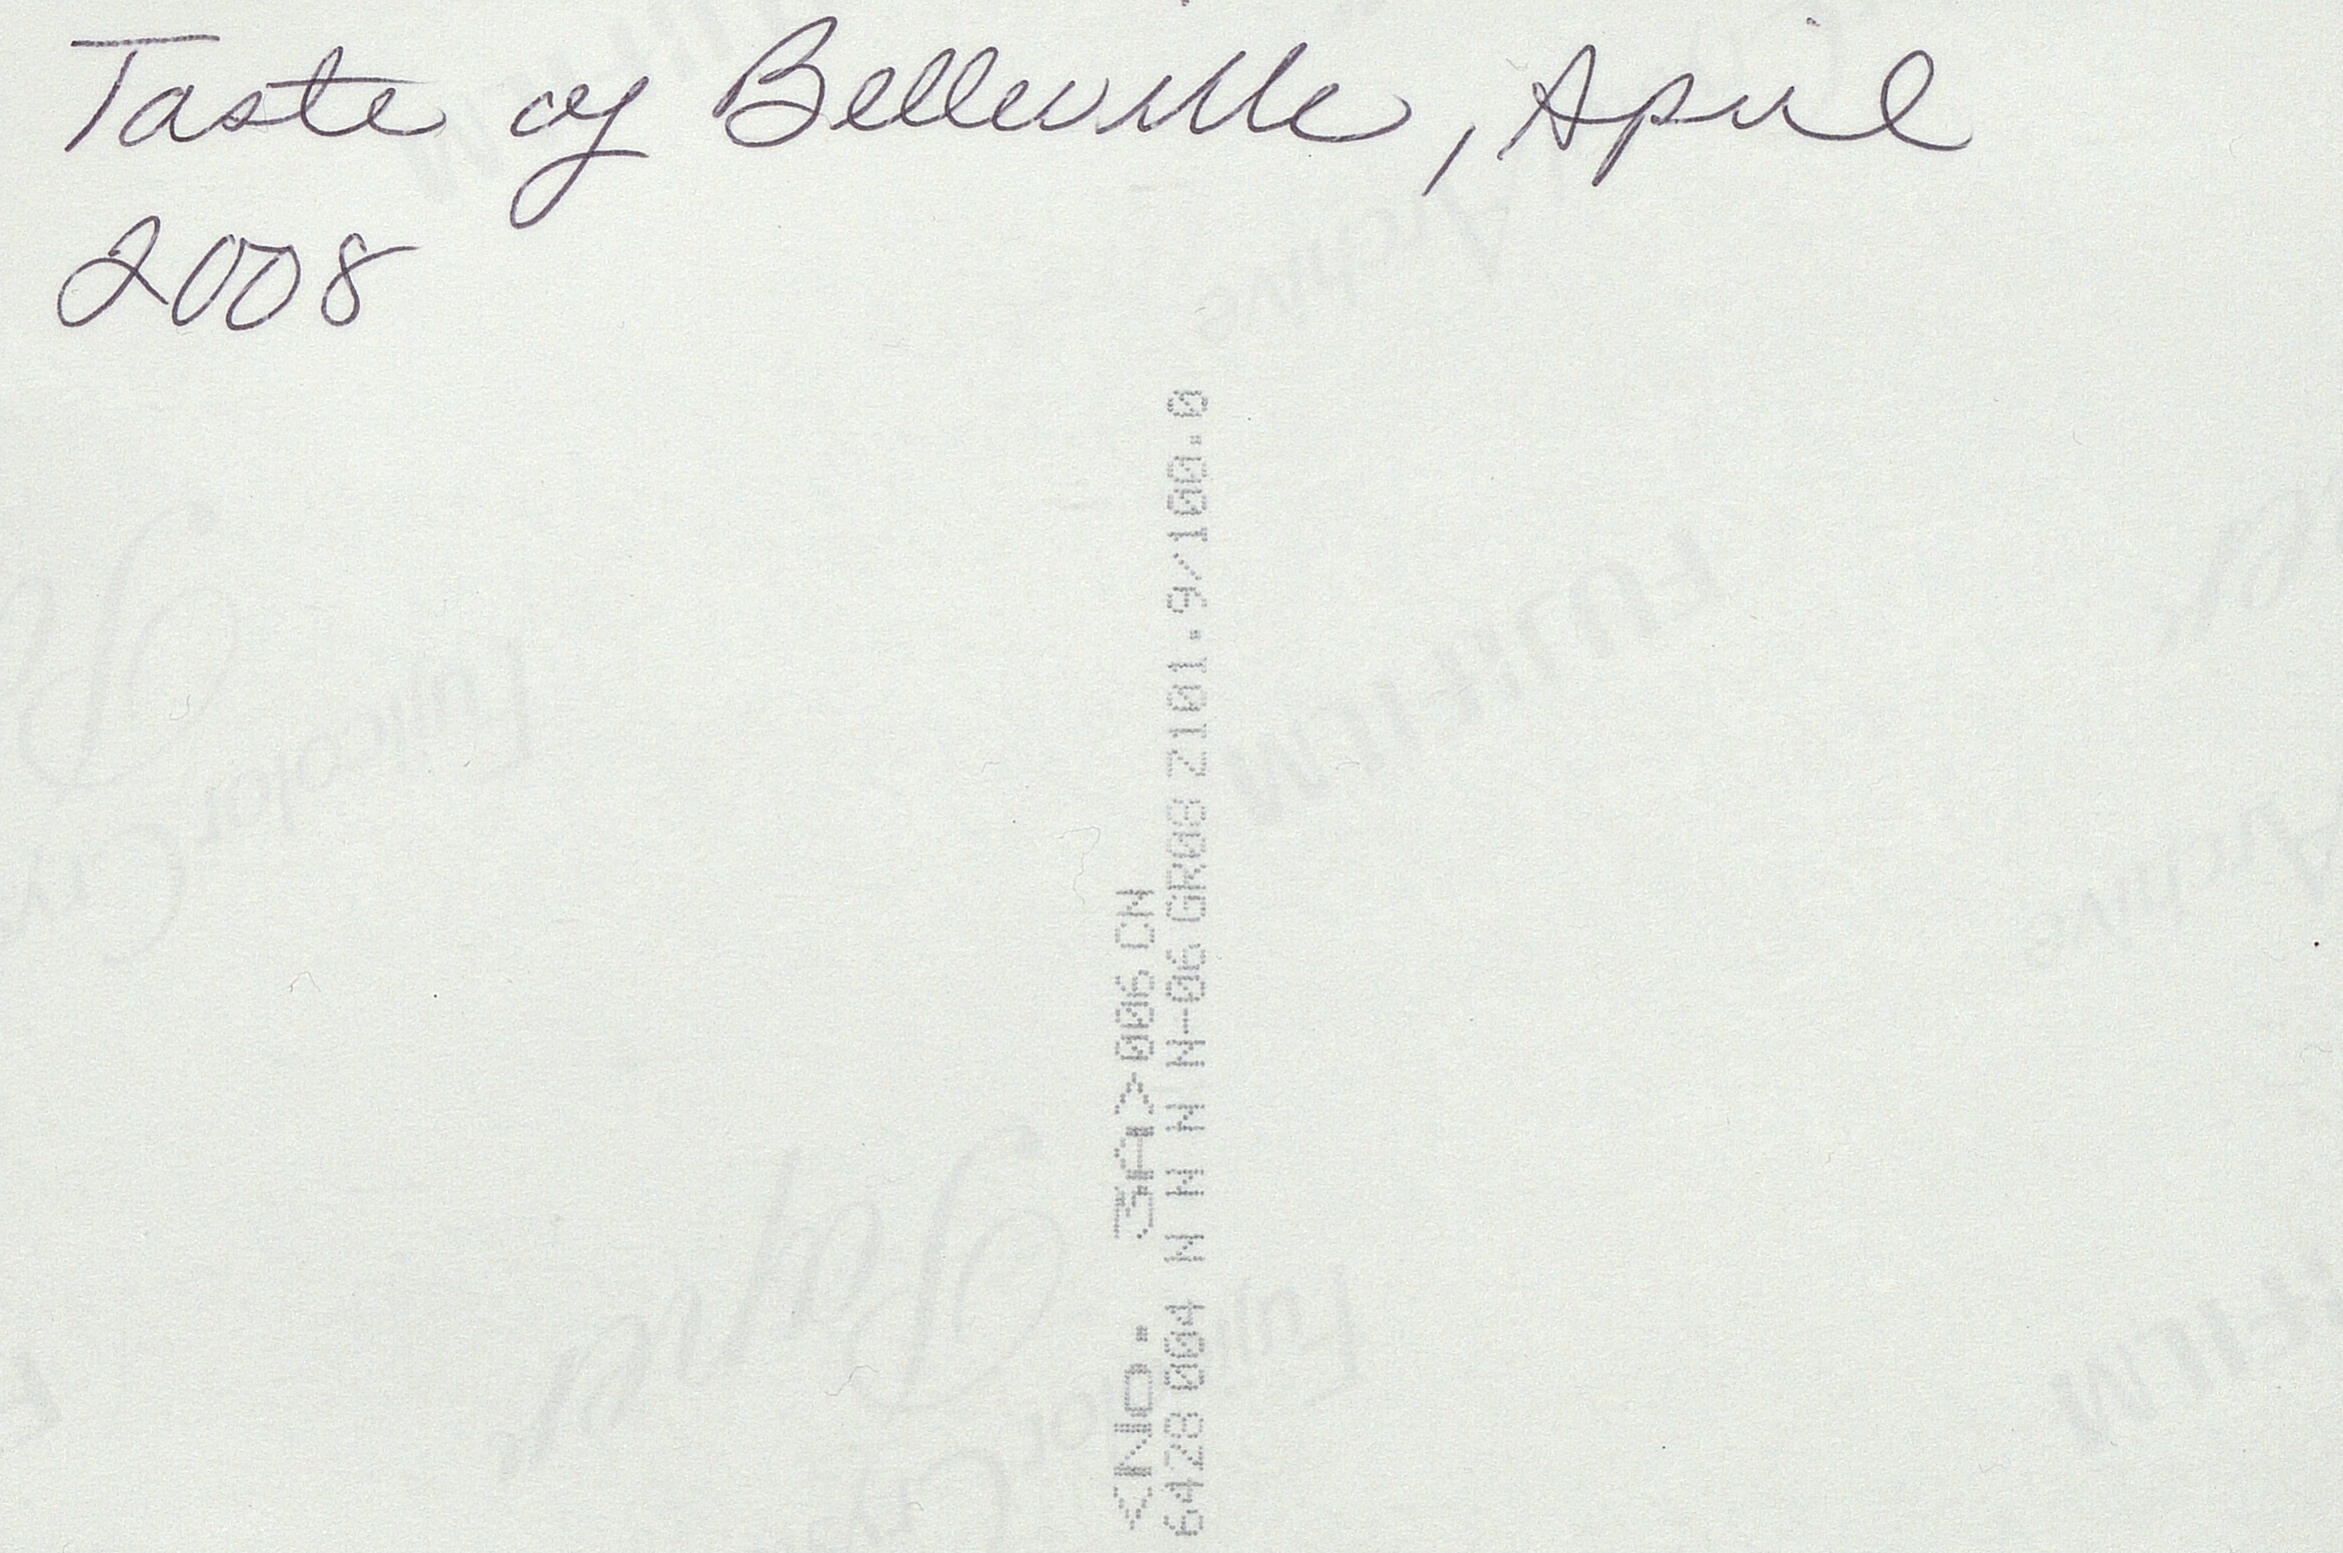 Taste of Belleville, April
2008
<No. 3A>006 CN
6428 004 N N N N-06 GR08 Z101.9/100.0
FUJIFILM
Fujicolor
Crystal
Archive
Paper